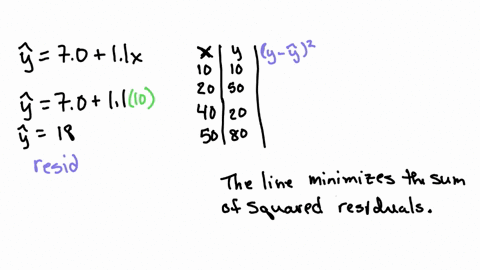 ŷ = 7.0 + 1.1x
ŷ = 7.0 + 1.1(10)
ŷ = 18
resid
x y (y-ŷ)²
10 10
20 50
40 20
50 80
The line minimizes the sum
of squared residuals.